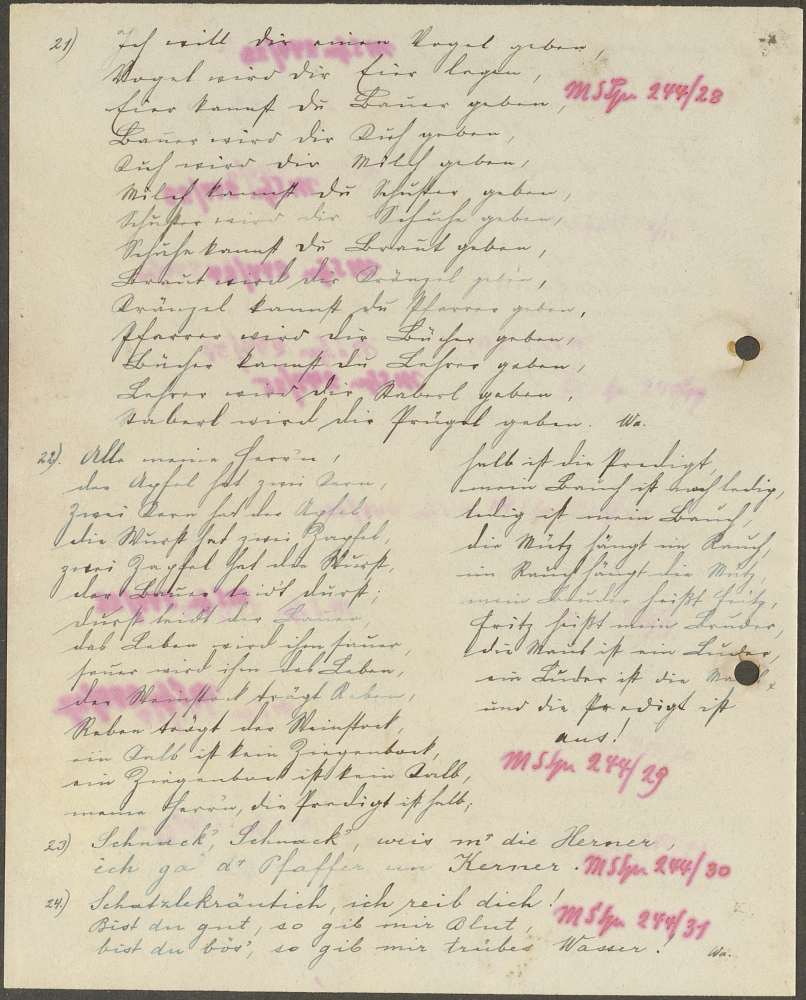 21) Ich will dir einen Vogel geben,
Vogel wird dir Eier legen,
Eier kannst du Bauer geben,
MSSpr 244/28
Bauer wird dir Kuh geben,
Kuh wird dir Milch geben,
Milch kannst du Schuster geben,
Schuster wird dir Schuhe geben,
Schuhe kannst du Braut geben,
Braut wird dir Kränzel geben,
Kränzel kannst du Pfarrer geben,
Pfarrer wird dir Bücher geben,
Bücher kannst du Lehrer geben,
Lehrer wird dir Staberl geben,
Staberl wird dir Prügel geben. Wa.
22). Alle meine Herr'n,
der Apfel hat zwei Kern,
Zwei Kern hat der Apfel,
die Wurst hat zwei Zapfel,
zwei Zapfel hat die Wurst,
der Bauer leidt durst;
durst leidt der Bauer,
das Leben wird ihm sauer,
sauer wird ihm das Leben,
der Weinstock trägt Reben,
Reben trägt der Weinstock,
ein Kalb ist kein Ziegenbock,
ein Ziegenbock ist kein Kalb,
meine Herrn, die Predigt ist halb;
halb ist die Predigt,
mein Bauch ist noch ledig,
ledig ist mein Bauch,
die Mütz hängt im Rauch,
im Rauch hängt die Mütz,
mein Bruder heißt Fritz,
Fritz heißt mein Bruder,
die Maus ist ein Luder,
ein Luder ist die Maus,
und die Predigt ist
aus!
MSSpr 244/29
23) Schnack', Schnack', weis m'r die Herner,
ich ga d'r Pfaffer un Kerner. MSSpr 244/30
24.) Schatzlekräutich, ich reib dich!
Bist du gut, so gib mir Blut,
MSSpr 244/31
bist du bös', so gib mir trübes Wasser! Wa.